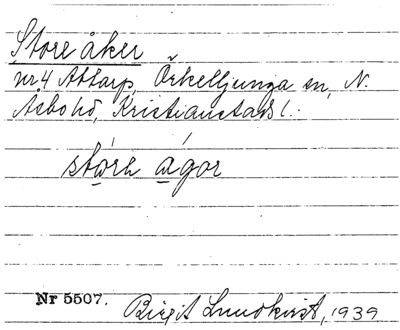 Store åker
nr 4 Attarp, Örkelljunga sn, N.
Åsbo hd, Kristianstads l.
stɷ́rə ágor
Nr 5507.
Birgit Lundkvist, 1939